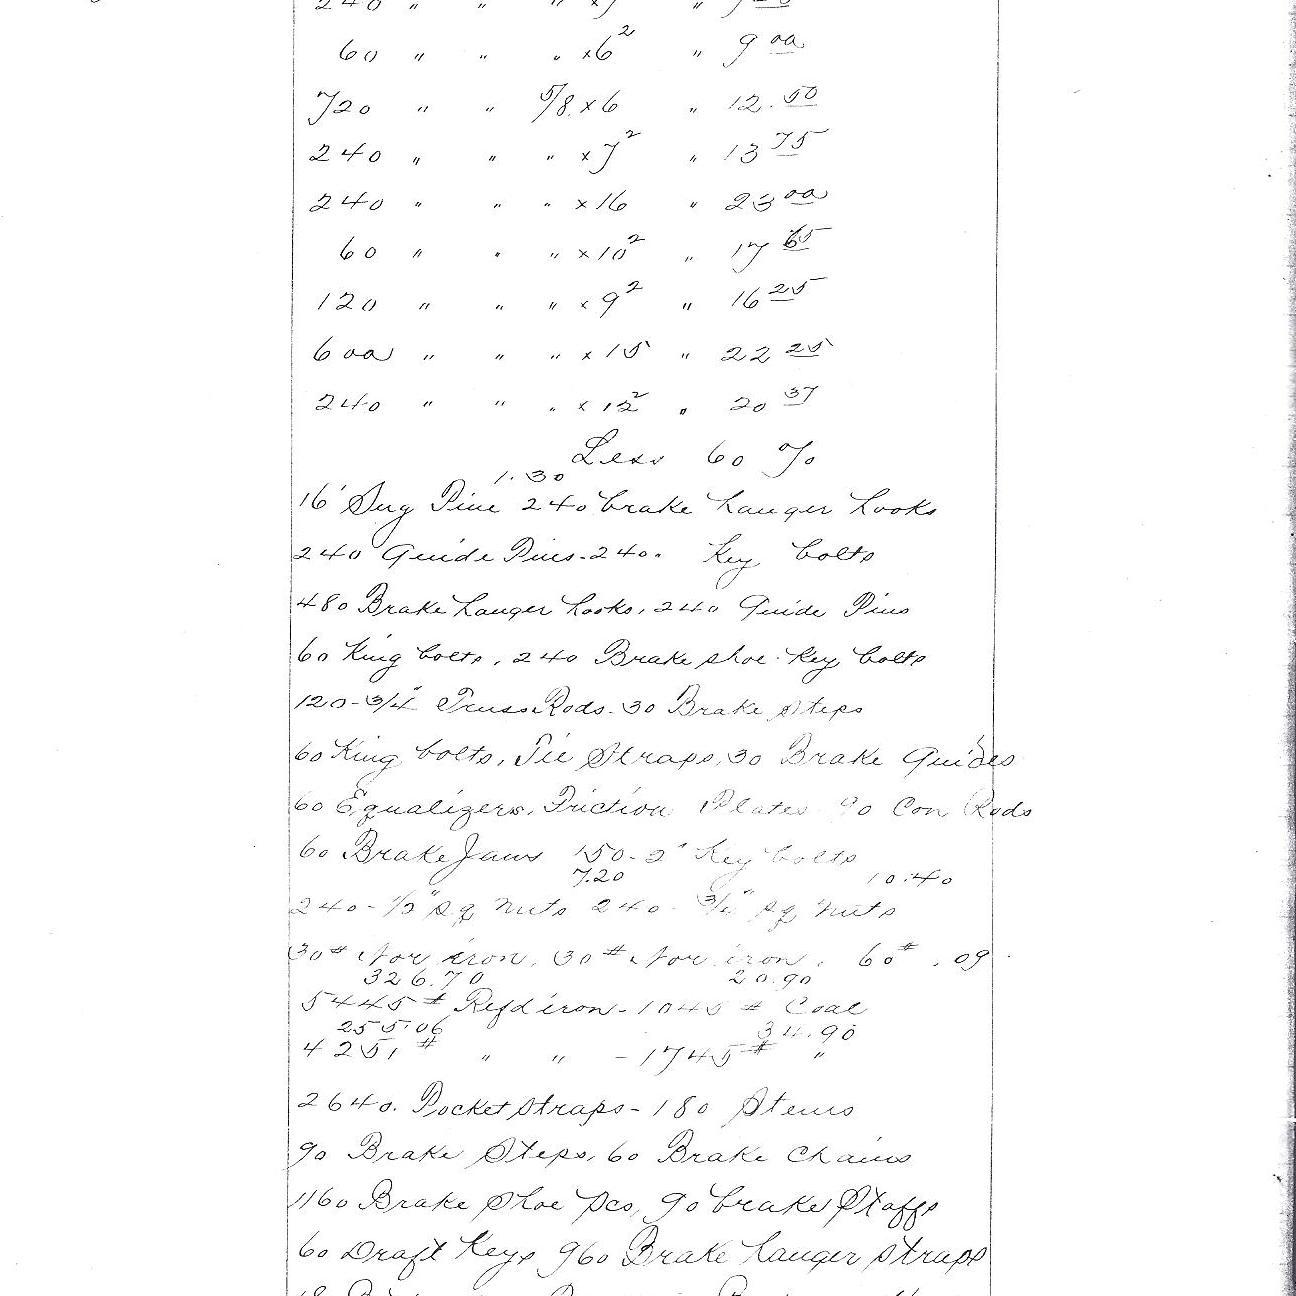 240 " " " x7 "
60 " " " x6² " 9 00
720 " " 5/8 x 6 " 12.50
240 " " " x7² " 13 75
240 " " " x 16 " 23 00
60 " " " x 10² " 17 65
120 " " " x 9² " 16 25
600 " " " x 15 " 22 25
240 " " " x 12² " 20 37
Less 60 %
1.30
16' Sug Pine 240 brake hanger hooks
240 Guide Pins - 240. Key bolts
480 Brake hanger hooks, 240 Guide Pins
60 King bolts, 240 Brake shoe Key bolts
120 - 3/4" Truss Rods. 30 Brake Steps
60 King bolts, Tie Straps, 30 Brake Guides
60 Equalizers, Friction Plates 90 Con Rods
60 Brake Jaws 150 - 2" Key bolts
7.20 10.40
240 - 1/2" sq nuts 240 - 3/4" sq nuts
30# Nor iron, 30# Nor iron, 60# .09
326.70 20.90
5445# Refd iron - 1045 # Coal
255.06 34.90
4251# " " - 1745# "
2640. Pocket straps - 180 Stems
90 Brake Steps, 60 Brake Chains
1160 Brake Shoe pcs, 90 brake Staffs
60 Draft Keys 960 Brake hanger straps